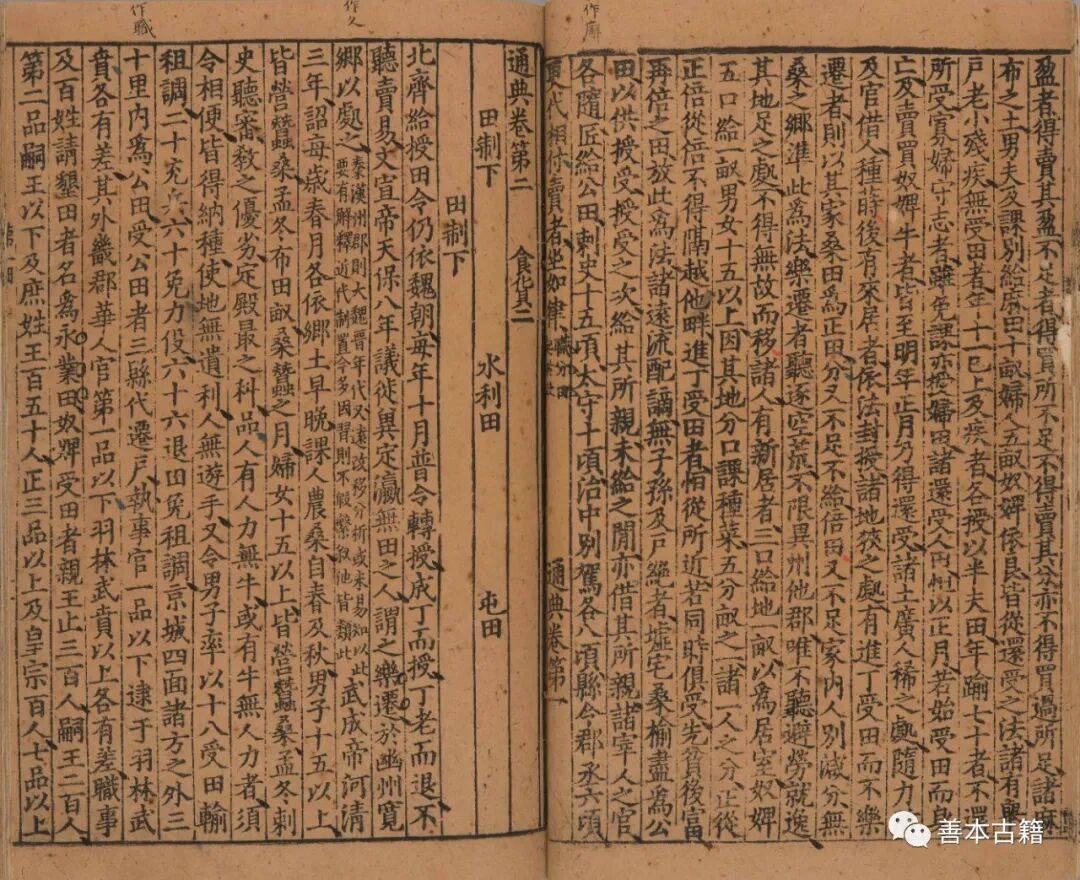 盈者得賣其盈不足者得買所不足不得賣其分亦不得買過所足諸麻
布之土男夫及課別給麻田十畝婦人五畝奴婢依良皆從還受之法諸有舉
戶老小殘疾無受田者年十一已上及疾者各授以半夫田年踰七十者不還
所受寡婦守志者雖免課亦授婦田諸還受人田以正月若始受田而身
亡及賣買奴婢牛者皆至明年正月乃得還受諸土廣人稀之處隨力所
及官借人種蒔後有來居者依法封授諸地狹之處有進丁受田而不樂
遷者則以其家桑田爲正田分又不足不給倍田又不足家內人別減分無
桑之鄉準此爲法樂遷者聽逐空荒不限異州他郡唯不聽避勞就逸
其地足之處不得無故而移諸人有新居者三口給地一畝以爲居室奴婢
五口給一畝男女十五以上因其地分口課種菜五分畝之一諸一人之分正從
正倍從倍不得隔越他畔進丁受田者恒從所近若同時俱受先貧後富
再倍之田放此爲法諸遠流配謫無子孫及戶絕者墟宅桑榆盡爲公
田以供授受授受之次給其所親未給之間亦借其所親諸宰人之官
各隨匠給公田刺史十五頃太守十頃治中別駕各八頃縣令郡丞六頃
更代相付賣者坐如律 職分田 通典卷第一
通典卷第二 食貨二
田制下 水利田 屯田
田制下
北齊給授田令仍依魏朝每年十月普令轉授成丁而授丁老而退不
聽賣易文宣帝天保八年議徙冀定瀛無田之人謂之樂遷於幽州寬
鄉以處之秦漢州郡則大魏晉年代又遠改移分析或未易知以此要有解釋近代制置今多因習則不假繁叙他皆類此武成帝河清
三年詔每歲春月各依鄉土早晚課人農桑自春及秋男子十五以上
皆營蠶桑孟冬布田畝桑蠶之月婦女十五以上皆營蠶桑孟冬刺
史聽審敎之優劣定殿最之科品人有人力無牛或有牛無人力者須
令相便皆得納種使地無遺利人無遊手又令男子率以十八受田輸
租調二十充兵六十免力役六十六退田免租調京城四面諸方之外三
十里內爲公田受公田者三縣代遷戶執事官一品以下逮于羽林武
賁各有差其外畿郡華人官第一品以下羽林武賁以上各有差職事
及百姓請墾田者名爲永業田奴婢受田者親王止三百人嗣王二百人
第二品嗣王以下及庶姓王百五十人正三品以上及皇宗百人七品以上
作久
作職
善本古籍